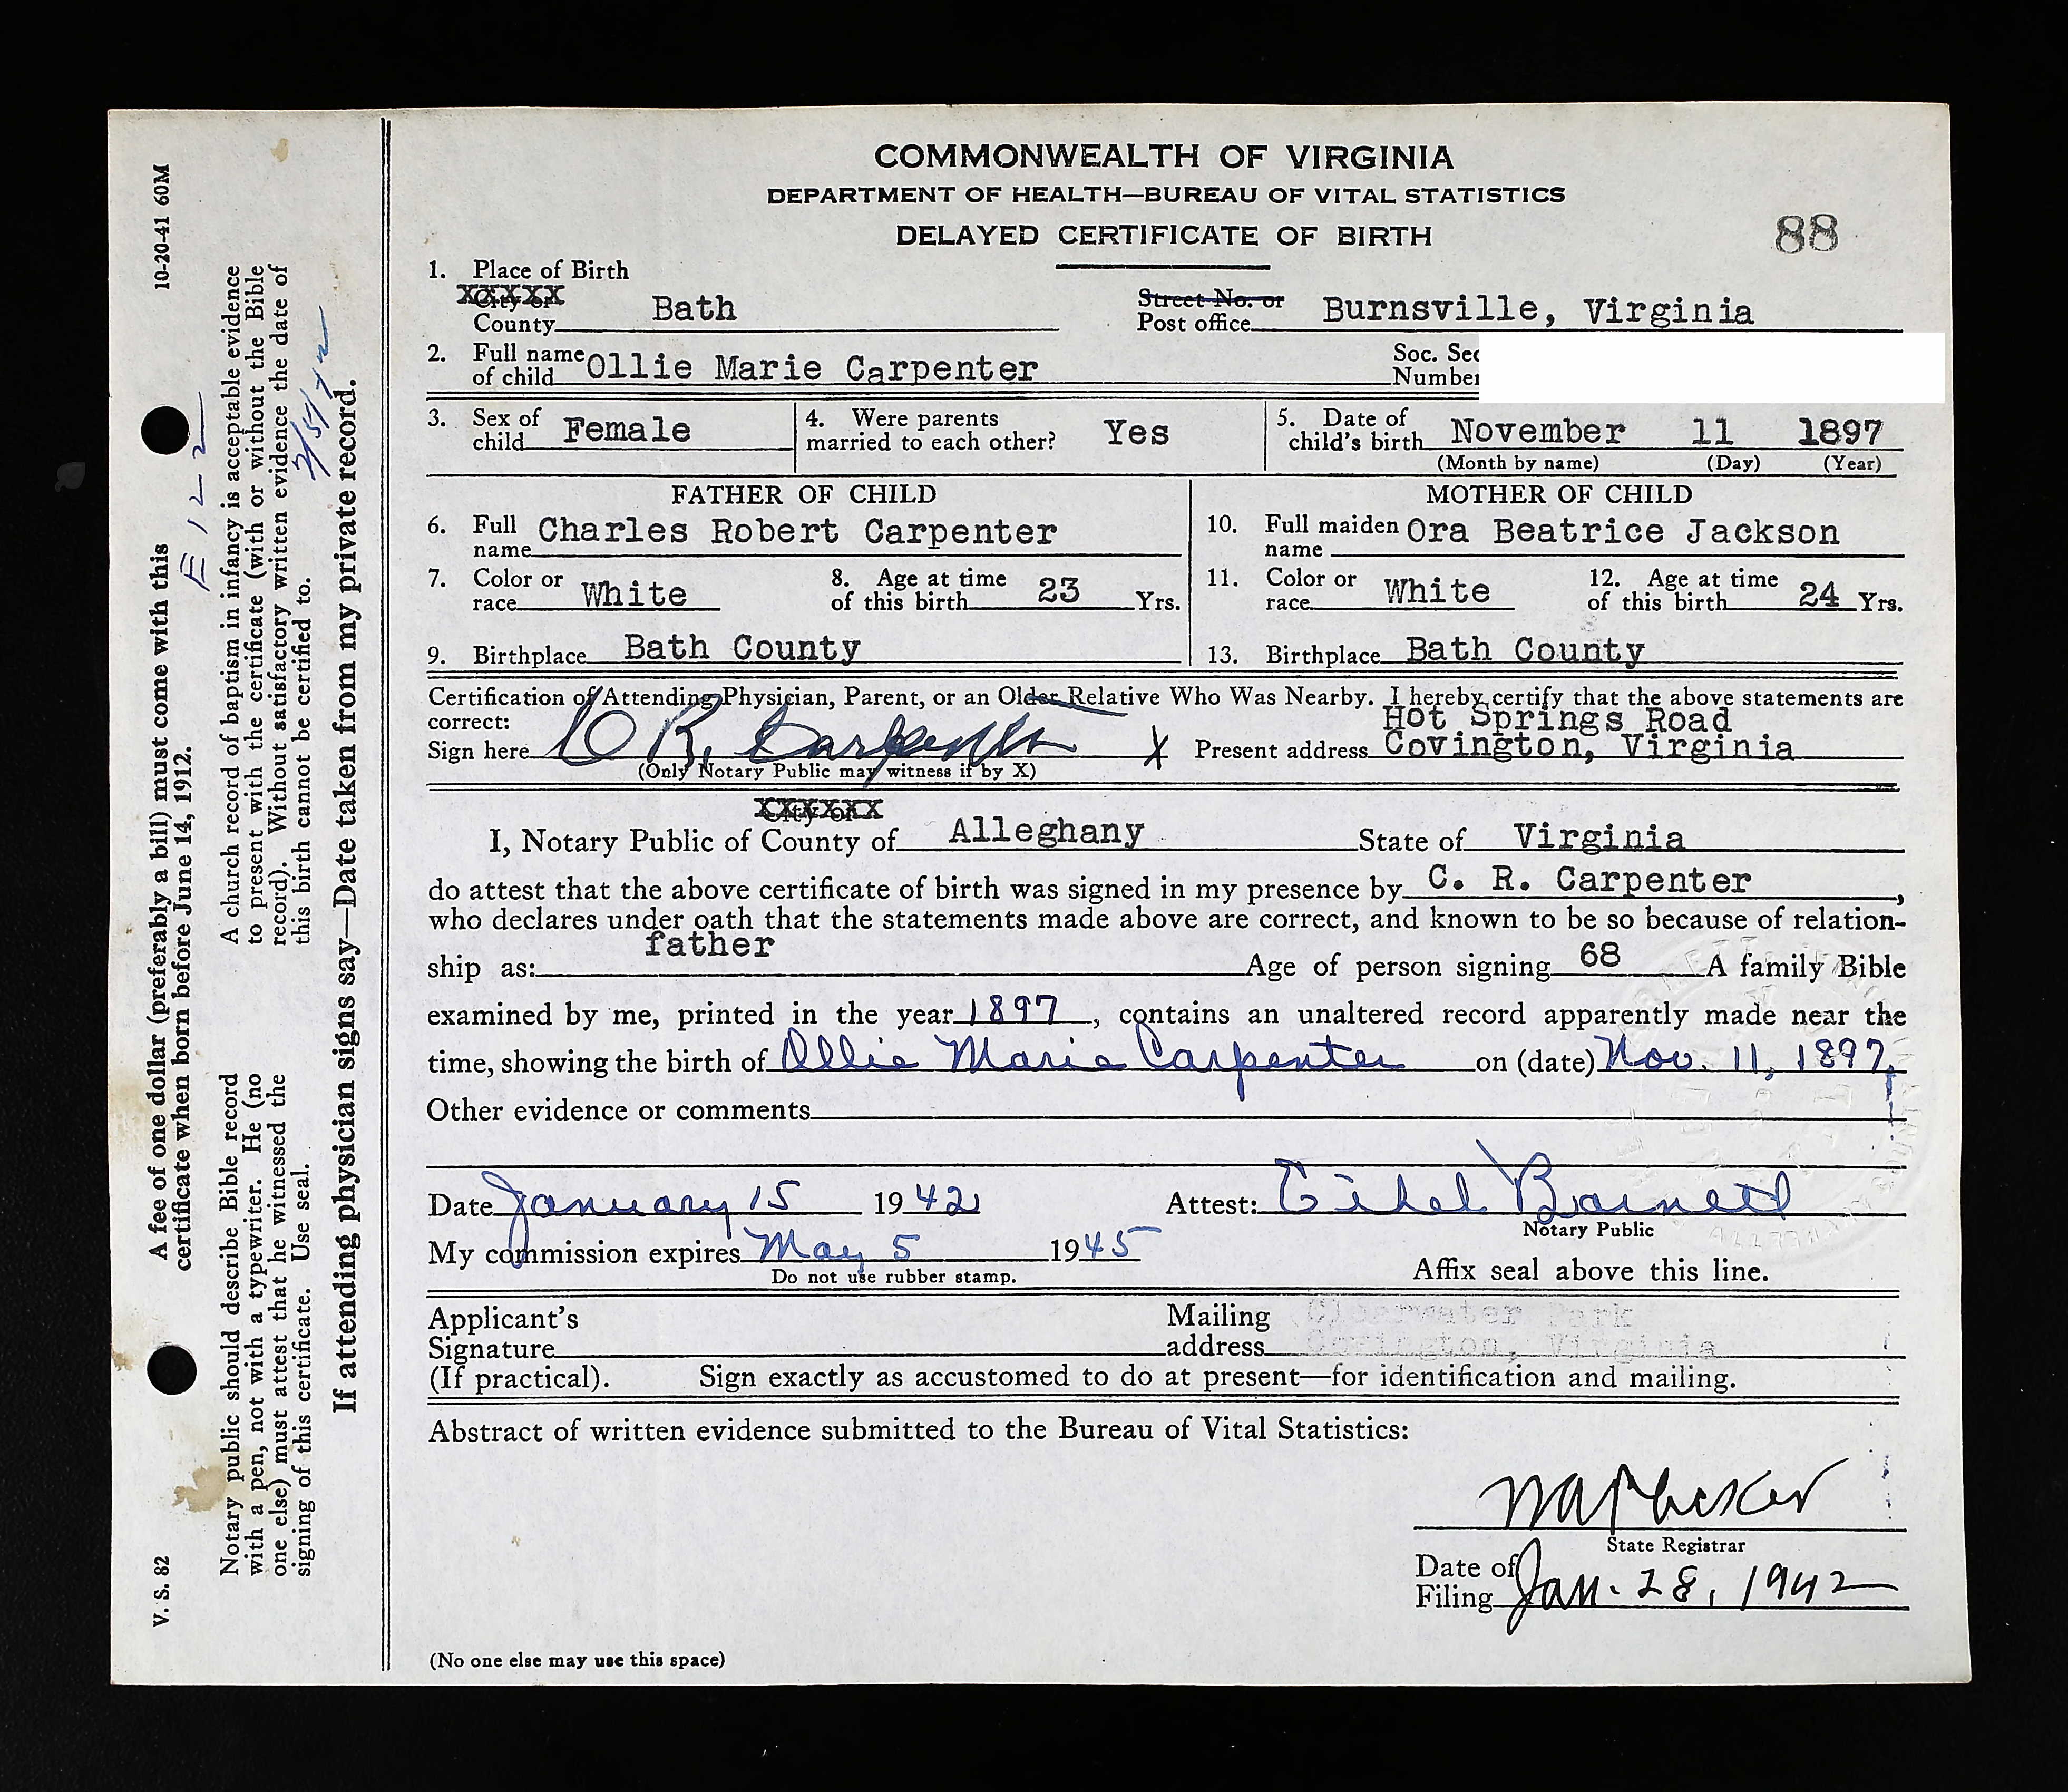 COMMONWEALTH OF VIRGINIA
DEPARTMENT OF HEALTH—BUREAU OF VITAL STATISTICS
DELAYED CERTIFICATE OF BIRTH
88
1. Place of Birth
City or
County Bath
Street No. or
Post office Burnsville, Virginia
2. Full name of child Ollie Marie Carpenter
Soc. Sec
Number
3. Sex of child Female
4. Were parents married to each other? Yes
5. Date of child's birth November 11 1897
(Month by name) (Day) (Year)
FATHER OF CHILD
6. Full name Charles Robert Carpenter
7. Color or race White
8. Age at time of this birth 23 Yrs.
9. Birthplace Bath County
MOTHER OF CHILD
10. Full maiden name Ora Beatrice Jackson
11. Color or race White
12. Age at time of this birth 24 Yrs.
13. Birthplace Bath County
Certification of Attending Physician, Parent, or an Older Relative Who Was Nearby. I hereby certify that the above statements are
correct:
Sign here C R. Carpenter X
(Only Notary Public may witness if by X)
Hot Springs Road
Present address Covington, Virginia
City or
I, Notary Public of County of Alleghany State of Virginia
do attest that the above certificate of birth was signed in my presence by C. R. Carpenter,
who declares under oath that the statements made above are correct, and known to be so because of relation-
ship as: father Age of person signing 68 A family Bible
examined by me, printed in the year 1897, contains an unaltered record apparently made near the
time, showing the birth of Ollie Marie Carpenter on (date) Nov. 11, 1897.
Other evidence or comments
Date January 15 1942 Attest: Ethel Barnett
Notary Public
My commission expires May 5 1945
Do not use rubber stamp.
Affix seal above this line.
Applicant's
Signature
(If practical). Sign exactly as accustomed to do at present—for identification and mailing.
Mailing address Clearwater Park
Covington, Virginia
Abstract of written evidence submitted to the Bureau of Vital Statistics:
State Registrar
Date of Filing Jan. 28, 1942
(No one else may use this space)
V. S. 82
10-20-41 60M
A fee of one dollar (preferably a bill) must come with this
certificate when born before June 14, 1912.
E 122
Notary public should describe Bible record
with a pen, not with a typewriter. He (no
one else) must attest that he witnessed the
signing of this certificate. Use seal.
A church record of baptism in infancy is acceptable evidence
to present with the certificate (with or without the Bible
record). Without satisfactory written evidence the date of
this birth cannot be certified to.
If attending physician signs say—Date taken from my private record.